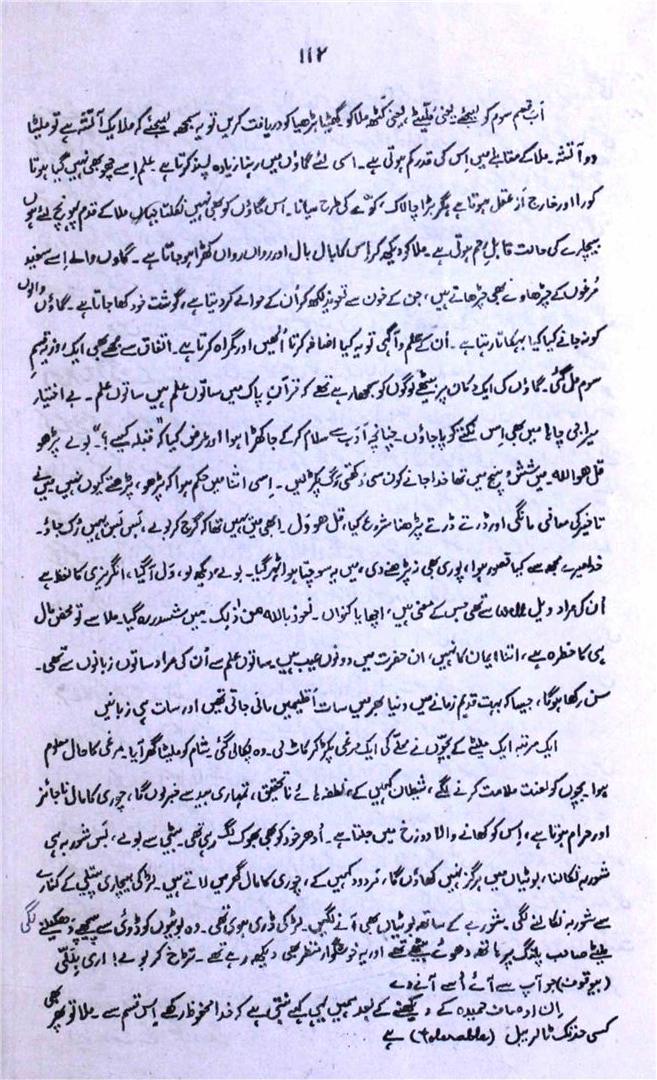 ۱۱۲
اَب قسم سوم کو لیجئے یعنی مُلّیٹے یعنی کٹھ ملا کو گھٹیا بڑھیا کو دریافت کریں تو یہ سمجھ لیجئے کہ ملا یک آتشہ ہے تو ملیٹا
دو آتشہ۔ ملا کے مقابلے میں اِس کی قدر کم ہوتی ہے۔ اسی لئے گاؤں میں رہنا زیادہ پسند کرتا ہے۔ علم اِسے چھو بھی نہیں گیا ہوتا
کورا اور خارج اَز عقل ہوتا ہے مگر بڑا چالاک، کوّے کی طرح سیانا۔ اس گاؤں کو بھی نہیں نکلتا جہاں ملا کے قدم پہونچ لئے ہوں
بیچارے کی حالت قابلِ رحم ہوتی ہے۔ ملا کو دیکھ کر اِس کا بال بال اور رواں رواں کھڑا ہو جاتا ہے۔ گاوں والے اِسے سفید
مُرغوں کے چڑھاوے بھی چڑھاتے ہیں، جن کے خون سے تعویذ لکھ کر اُن کے حوالے کر دیتا ہے، گوشت خود کھا جاتا ہے۔ گاؤں والوں
کو نہ جانے کیا کیا بہکاتا رہتا ہے۔ اُن کے علم و آگہی تو یہ کیا اضافہ کرتا اُلٹیں اور گمراہ کرتا ہے۔ اتفاق سے مجھے بھی ایک روز قسمِ
سوم مل گئی۔ گاؤں کی ایک دکان پر بیٹھے لوگوں کو سمجھا رہے تھے کہ قرآنِ پاک میں ساتوں علم ہیں ساتوں علم۔ بے اختیار
میرا جی چاہا میں بھی اِس نکتے کو پا جاؤں۔ چنانچہ اَدب سے سلام کر کے جا کھڑا ہوا اور عرض کیا کہ "قبلہ کیسے؟" بولے پڑھو
قل ھو اللہ۔ میں شش و پنج میں تھا خدا جانے کون سی دُکھتی رگ پکڑ لیں۔ اِسی اثنا میں حکم ہوا کہ پڑھو، پڑھتے کیوں نہیں میں نے
تاخیر کی معافی مانگی اور ڈرتے ڈرتے پڑھنا شروع کیا، قل ھو وَل۔ ابھی میں یہیں تھا کہ گرج کر بولے، بَس بَس یہیں رُک جاؤ۔
خدا خیر مجھ سے کیا قصور ہوا، پوری بھی نہ پڑھنے دی، میں یہ سوچتا ہوا ٹہر گیا۔ بولے دیکھ لو، وَل آ گیا، انگرزی کا لفظ ہے
اُن کی مراد ویل well سے تھی جس کے معنی ہیں، اچھا یا کنواں۔ نعوذ باللہ من ذٰلِک۔ میں ششدر رہ گیا۔ ملا سے تو محض مال
ہی کا خطرہ ہے، اتنا ایمان کا نہیں، ان حضرت میں دونوں عیب ہیں۔ ساتوں علم سے اُن کی مراد ساتوں زبانوں سے تھی۔
سن رکھا ہوگا، جیسا کہ بہت قدیم زمانے میں دنیا بھر میں سات اَقلیمیں مانی جاتی تھیں اور سات ہی زبانیں
ایک مرتبہ ایک ملیٹے کے بچّوں نے محلّے کی ایک مرغی پکڑ کر کاٹ لی۔ وہ پکا لی گئی۔ شام کو ملیٹا گھر آیا۔ مرغی کا حال معلوم
ہوا بچوں کو لعنت ملامت کرنے لگے، شیطان کہیں کے، نطفہ ہائے نا تحقیق، تمہاری بید سے خبر لوں گا، چوری کا مال ناجائز
اور حرام ہوتا ہے، اِس کو کھانے والا دوزخ میں جلتا ہے۔ اُدھر خود کو بھی بھوک لگ رہی تھی۔ بیٹی سے بولے، بَس شوربہ ہی
شوربہ نکالنا، بوٹیاں میں ہرگز نہیں کھاؤں گا، مردود کہیں کے، چوری کا مال گھر میں لاتے ہیں۔ لڑکی بیچاری پتیلی کے کنارے
سے شوربہ نکالنے لگی۔ شوربے کے ساتھ بوٹیاں بھی آنے لگیں۔ لڑکی ڈری ہوئی تھی۔ وہ بوٹیوں کو ڈوئی سے پیچھے دھکیلنے لگی
ملیٹے صاحب پلنگ پر ہاتھ دھوئے بیٹھے تھے اور یہ خوشگوار منظر بھی دیکھ رہے تھے۔ تڑاخ کر بولے! اری پلّی
(بیوقوف) جو آپ سے آئے اُسے آنے دے
اِن اوصاف حمیدہ کے دیکھنے کے بعد ہمیں یہی کہے بنتی ہے کہ خدا محفوظ رکھے اِس قسم سے۔ ملا تو پھر بھی
کسی حد تک ٹالریبل (tolerable) ہے